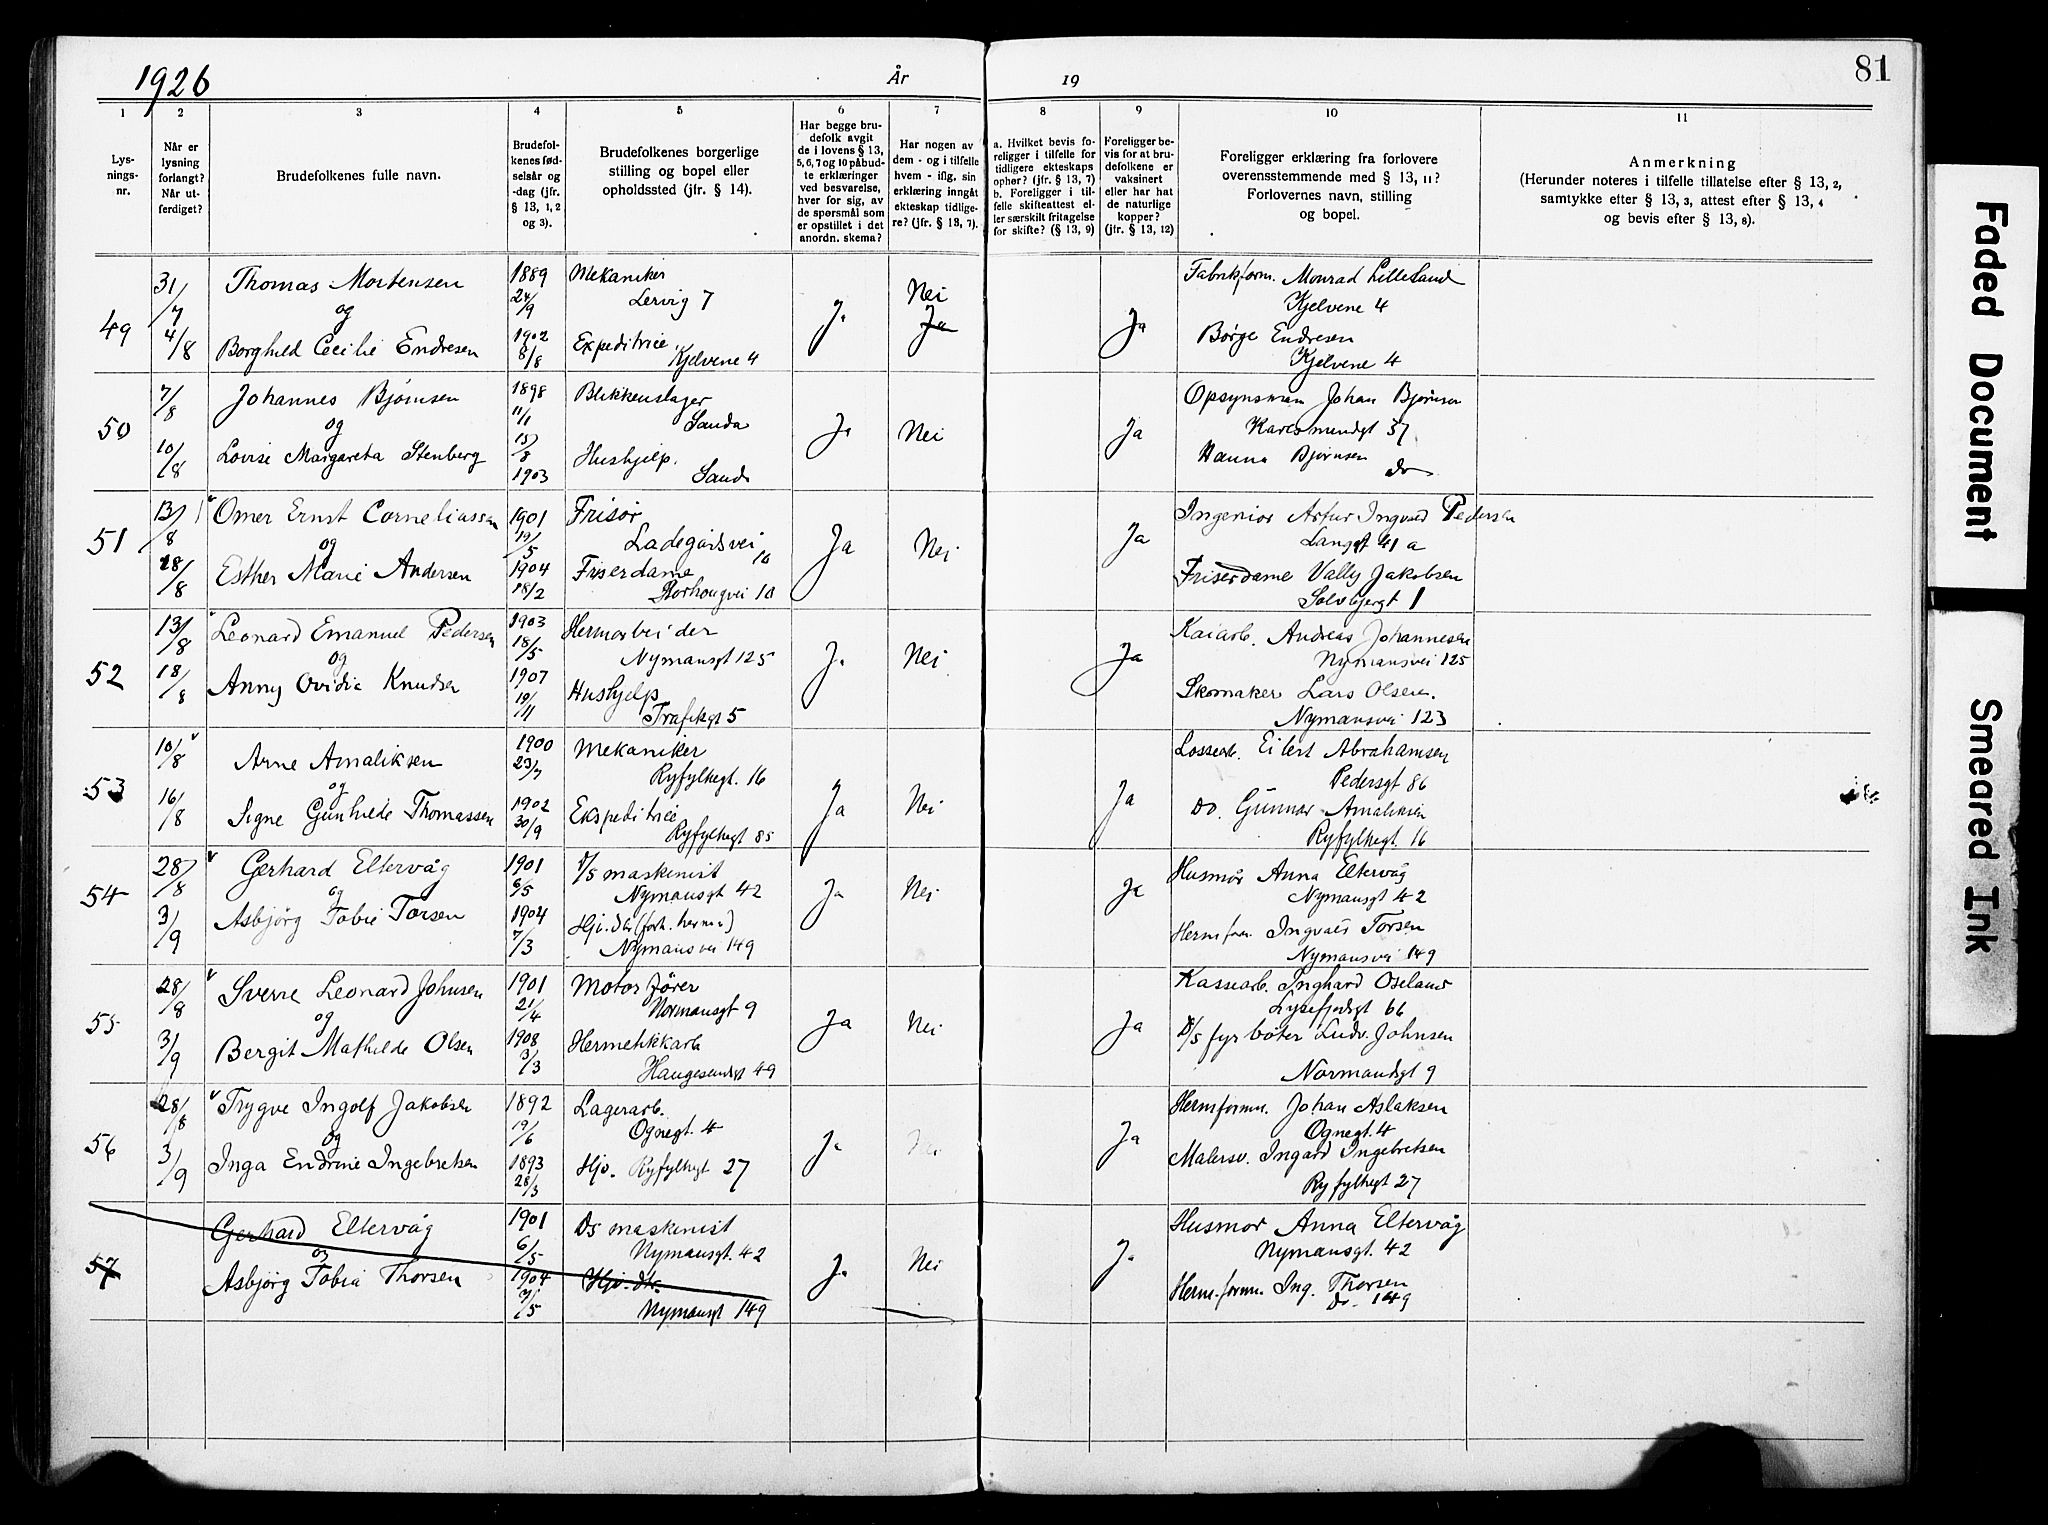 1926 År 19 81
1 2 3 4 5 6 7 8 9 10 11
Lys-
nings-
nr.
Når er
lysning
forlangt?
Når ut-
ferdiget?
Brudefolkenes fulle navn.
Brudefol-
kenes fød-
selsår og
-dag (jfr.
§ 13, 1, 2
og 3).
Brudefolkenes borgerlige
stilling og bopel eller
opholdssted (jfr. § 14).
Har begge bru-
defolk avgit
de i lovens § 13,
5, 6, 7 og 10 påbud-
te erklæringer
ved besvarelse,
hver for sig, av
de spørsmål som
er opstillet i det
anordn. skema?
Har nogen av
dem - og i tilfelle
hvem - iflg. sin
erklæring inngåt
ekteskap tidlige-
re? (jfr. § 13, 7).
a. Hvilket bevis fo-
religger i tilfelle for
tidligere ekteskaps
ophør? (jfr. § 13, 7)
b. Foreligger i til-
felle skifteattest el-
ler særskilt fritagelse
for skifte? (§ 13, 9)
Foreligger be-
vis for at bru-
defolkene er
vaksinert
eller har hat
de naturlige
kopper?
(jfr. § 13, 12)
Foreligger erklæring fra forlovere
overensstemmende med § 13, 11?
Forlovernes navn, stilling
og bopel.
Anmerkning
(Herunder noteres i tilfelle tillatelse efter § 13, 2,
samtykke efter § 13, 3, attest efter § 13, 4
og bevis efter § 13, 8).
49 31/7 Thomas Mortensen 1889 24/9 Mekaniker Nei Fabrikform. Monrad Lilleland
og Lervig 7 Ja Ja Ja Kjelvene 4
4/8 Borghild Cecilie Endresen 1902 8/8 Expeditrice Børge Endresen
Kjelvene 4 Kjelvene 4
50 7/8 Johannes Bjørnsen 1898 11/1 Blikkenslager Opsynsman Johan Bjørnsen
og Sanda Ja Nei Ja
10/8 Lovise Margareta Stenberg 15/8 1903 Hushjelp. Hanna Bjørnsen
do
51 13/8 Omer Ernst Corneliussen 1901 19/5 Frisør Ingeniør Artur Ingvald Pedersen
og Ladegårdsvei 10 Ja Nei Ja Langgt 41 a
28/8 Esther Marie Andersen 1904 18/2 Friserdame Friserdame Vally Jakobsen
10 Solvbjergt 1
52 13/8 Leonard Emanuel Pedersen 1903 18/5 Hermarbeider Kaiarb. Andreas Johannesen
og Nymansgt 125 Ja Nei Ja Nymansvei 125
18/8 Anny Ovidie Knudsen 1907 19/11 Hushjelp Skomaker Lars Olsen.
Trafikgt 5 Nymansvei 123
53 10/8 Arne Amaliksen 1900 23/7 Mekaniker Lossearb. Eilert Abrahamsen
og Ryfylkegt. 16 Ja Nei Ja Pedersgt 86
16/8 Signe Gunhilde Thomassen 1902 30/9 Ekspeditrice Do. Gunnar Amaliksen
Ryfylkegt 85 Ryfylkegt. 16
54 28/8 Gerhard Eltervåg 1901 6/5 D/S maskinist Husmor Anna Eltervåg
og Nymansgt 42 Ja Nei Ja Nymansgt 42
3/9 Asbjörg Tobie Torsen 1904 7/3 Hermform. Ingvald Torsen
Nymansvei 149 Nymansvei 149
55 28/8 Sverre Leonard Johnsen 1901 21/4 Motorfører Inghard Oseland
og Normansgt 9 Ja Nei Ja Lysefjordgt 66
3/9 Bergit Mathilde Olsen 1908 3/3 Hermetikkarb D/S fyrbøter Ludv. Johnsen
Haugesundgt 49 Normandsgt 9
56 28/8 Trygve Ingolf Jakobsen 1892 19/6 Lagerarb. Hermformn. Johan Aslaksen
og Ognegt. 4 Ja Nei Ja Ognegt. 4
3/9 Inga Endrine Ingebretsen 1893 28/3 Hjv. Ryfylkegt 27 Malersv. Ingard Ingebretsen
Ryfylkegt 27
57 Gerhard Eltervåg 1901 6/5 Ds maskinist Husmor Anna Eltervåg
og Nymansgt. 42 Ja Nei Ja Nymansgt. 42
Asbjörg Tobia Thorsen 1904 7/5 Hjv. dtr. Herm.formn. Ing. Thorsen
Nymansgt 149 Do - 149
Faded Document
Smeared Ink